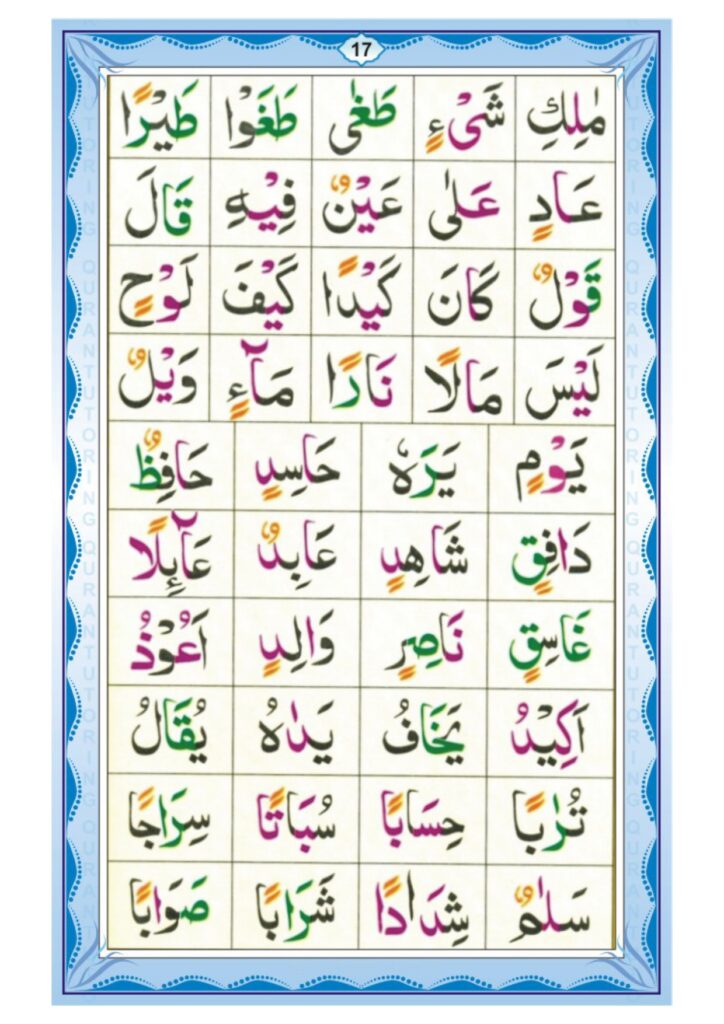 17
مٰلِكِ شَیْءٍ طَغٰی طَغَوْا طَيْرًا
عَادٍ عَلٰی عَيْنٌ فِيْهِ قَالَ
قَوْلٌ كَانَ كَيْدًا كَيْفَ لَوْحٍ
لَيْسَ مَالًا نَارًا مَآءٍ وَيْلٌ
يَوْمٍ يَرَهٗ حَاسِدٍ حَافِظٌ
دَافِقٍ شَاهِدٍ عَابِدٌ عَآئِلًا
غَاسِقٍ نَاصِرٍ وَالِدٍ اَعُوْذُ
اَكِيْدُ يَخَافُ يَدٰهُ يُقَالُ
تُرٰبًا حِسَابًا سُبَاتًا سِرَاجًا
سَلٰمٌ شِدَادًا شَرَابًا صَوَابًا
QURAN TUTORING QURAN TUTORING
QURAN TUTORING QURAN TUTORING